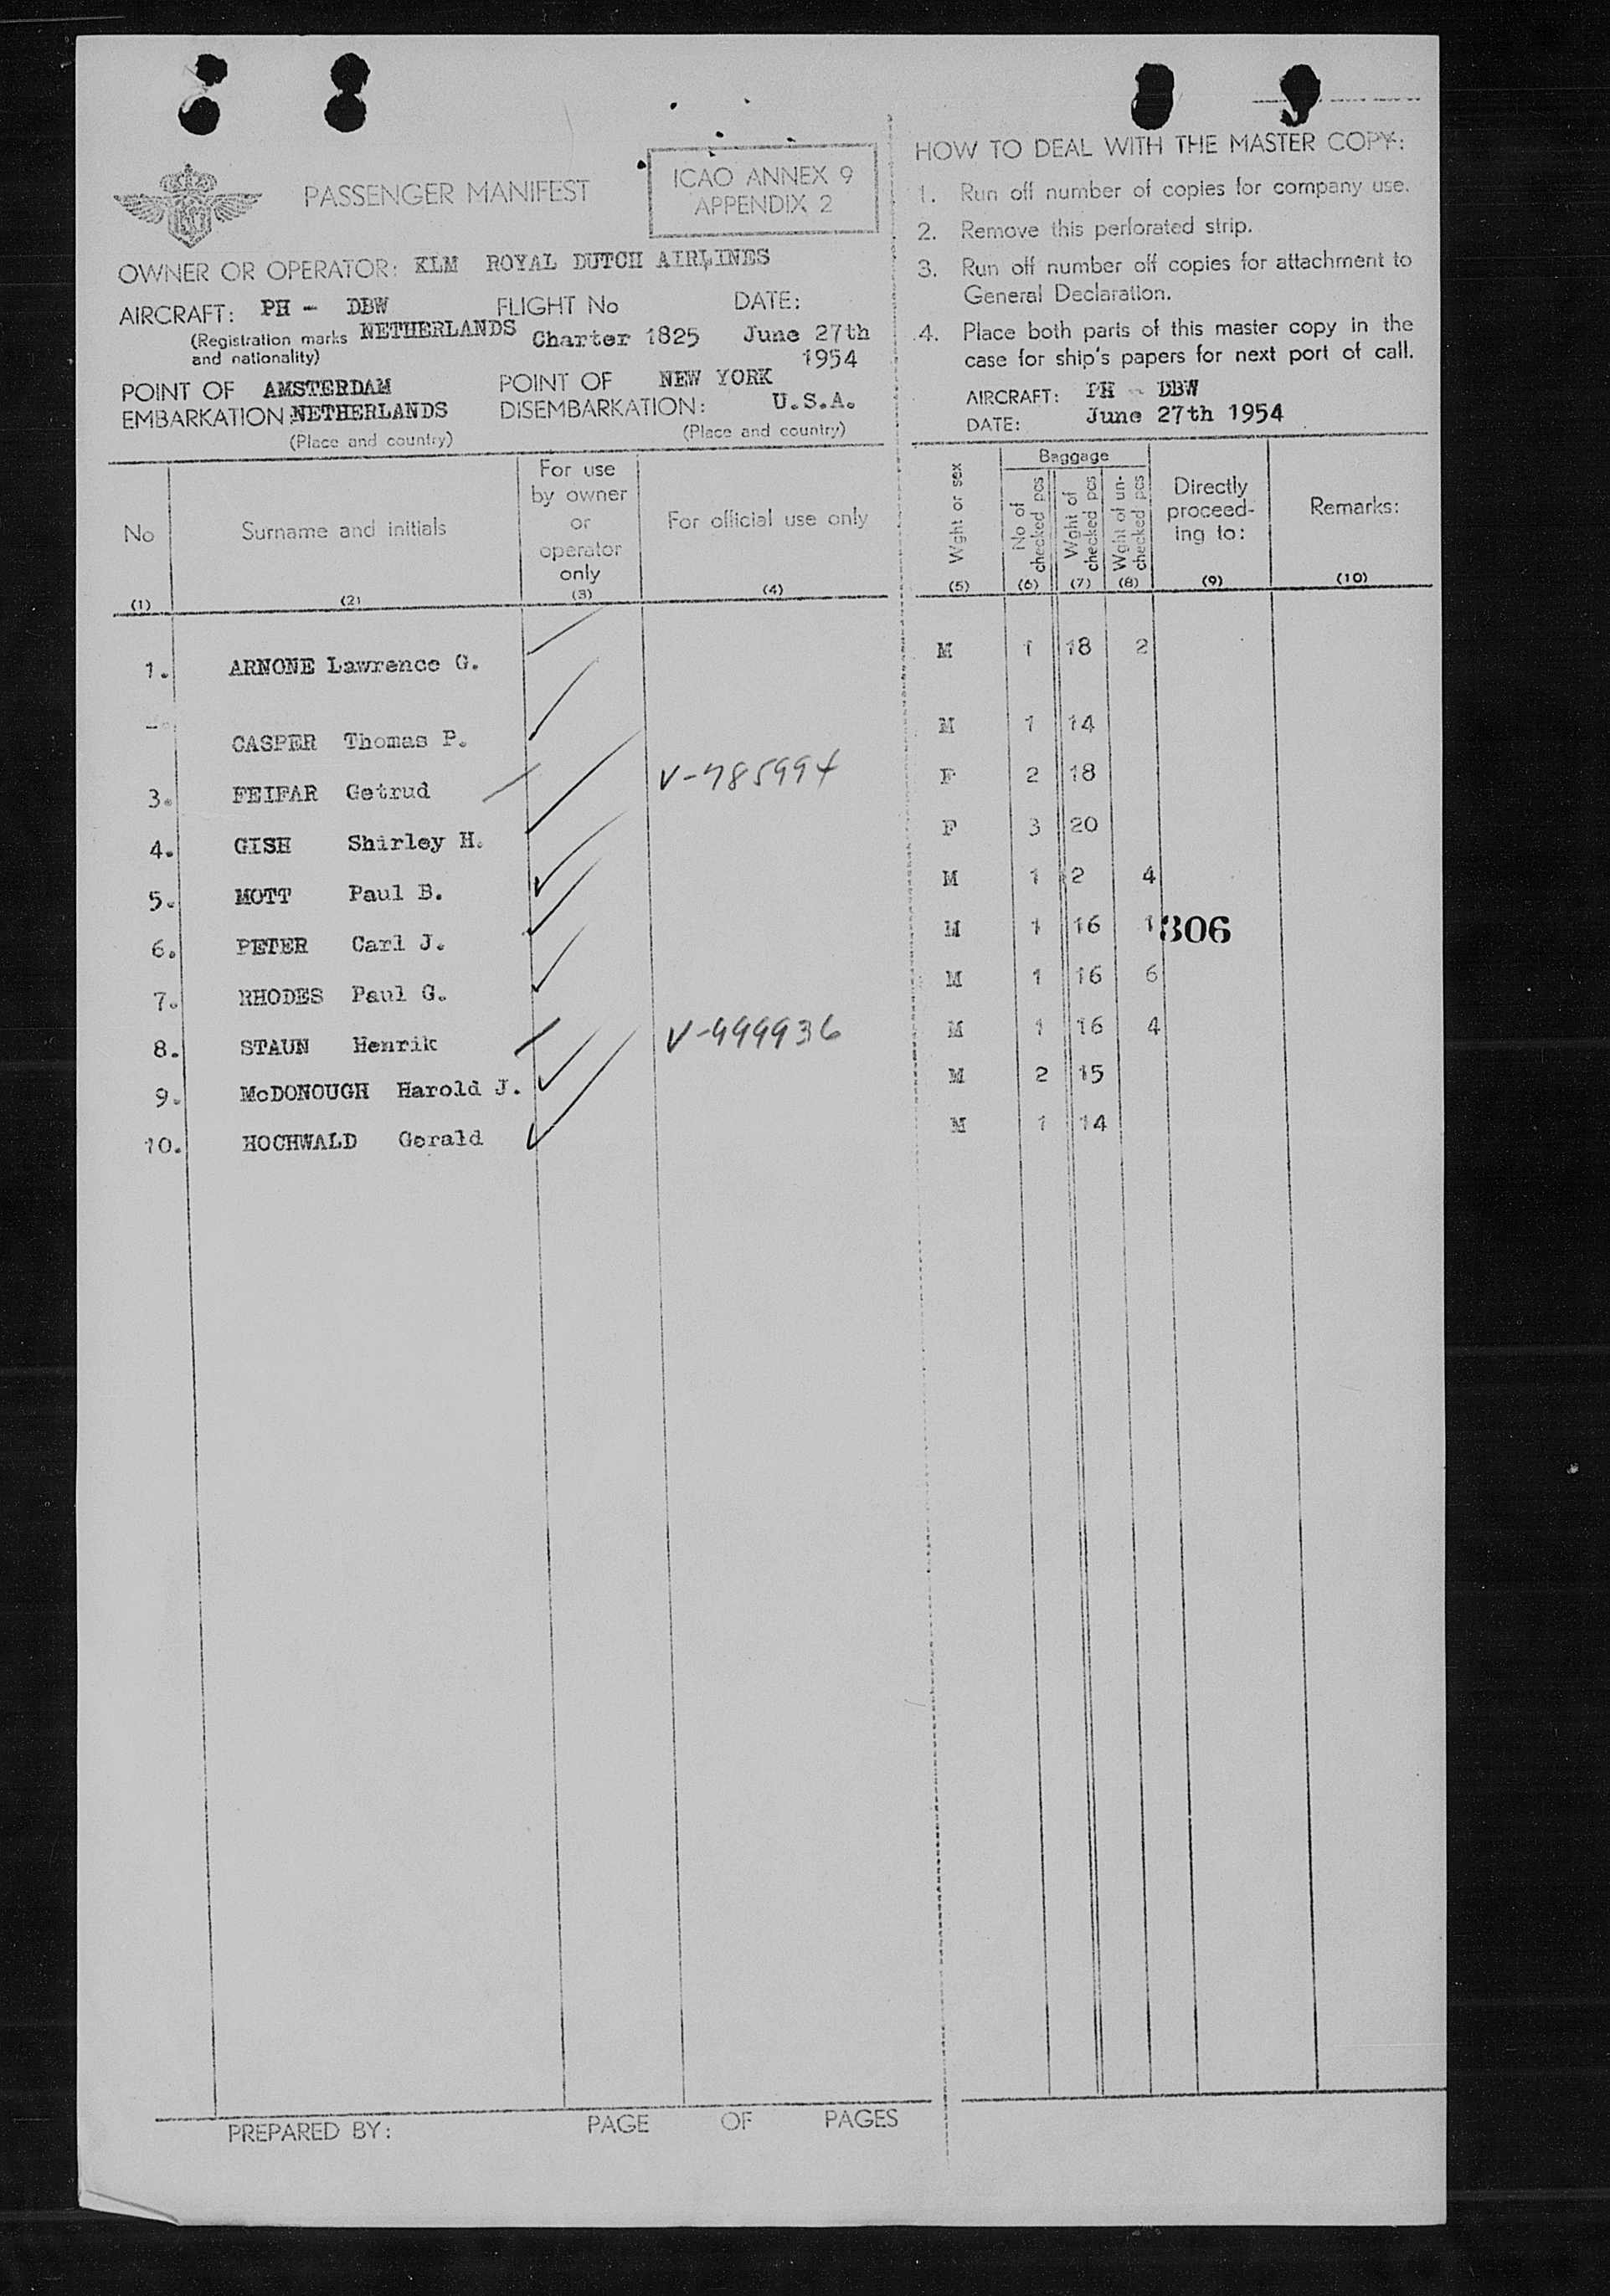 PASSENGER MANIFEST
ICAO ANNEX 9
APPENDIX 2
OWNER OR OPERATOR: KLM ROYAL DUTCH AIRLINES
AIRCRAFT: PH - DBW FLIGHT No DATE:
(Registration marks NETHERLANDS Charter 1825 June 27th
and nationality) 1954
POINT OF AMSTERDAM POINT OF NEW YORK
EMBARKATION: NETHERLANDS DISEMBARKATION: U.S.A.
(Place and country) (Place and country)
HOW TO DEAL WITH THE MASTER COPY:
1. Run off number of copies for company use.
2. Remove this perforated strip.
3. Run off number off copies for attachment to
General Declaration.
4. Place both parts of this master copy in the
case for ship's papers for next port of call.
AIRCRAFT: PH - DBW
DATE: June 27th 1954
No
(1)
Surname and initials
(2)
For use
by owner
or
operator
only
(3)
For official use only
(4)
Wght or sex
(5)
Baggage
No of
checked pcs
(6)
Wght of
checked pcs
(7)
Wght of un-
checked pcs
(8)
Directly
proceed-
ing to:
(9)
Remarks:
(10)
1. ARNONE Lawrence G. M 1 18 2
CASPER Thomas P. M 1 14
3. FEIFAR Getrud V-485994 F 2 18
4. GISH Shirley H. F 3 20
5. MOTT Paul B. M 1 2 4
6. PETER Carl J. M 1 16 1 306
7. RHODES Paul G. M 1 16 6
8. STAUN Henrik V-999936 M 1 16 4
9. McDONOUGH Harold J. M 2 15
10. HOCHWALD Gerald M 1 14
PREPARED BY: PAGE OF PAGES